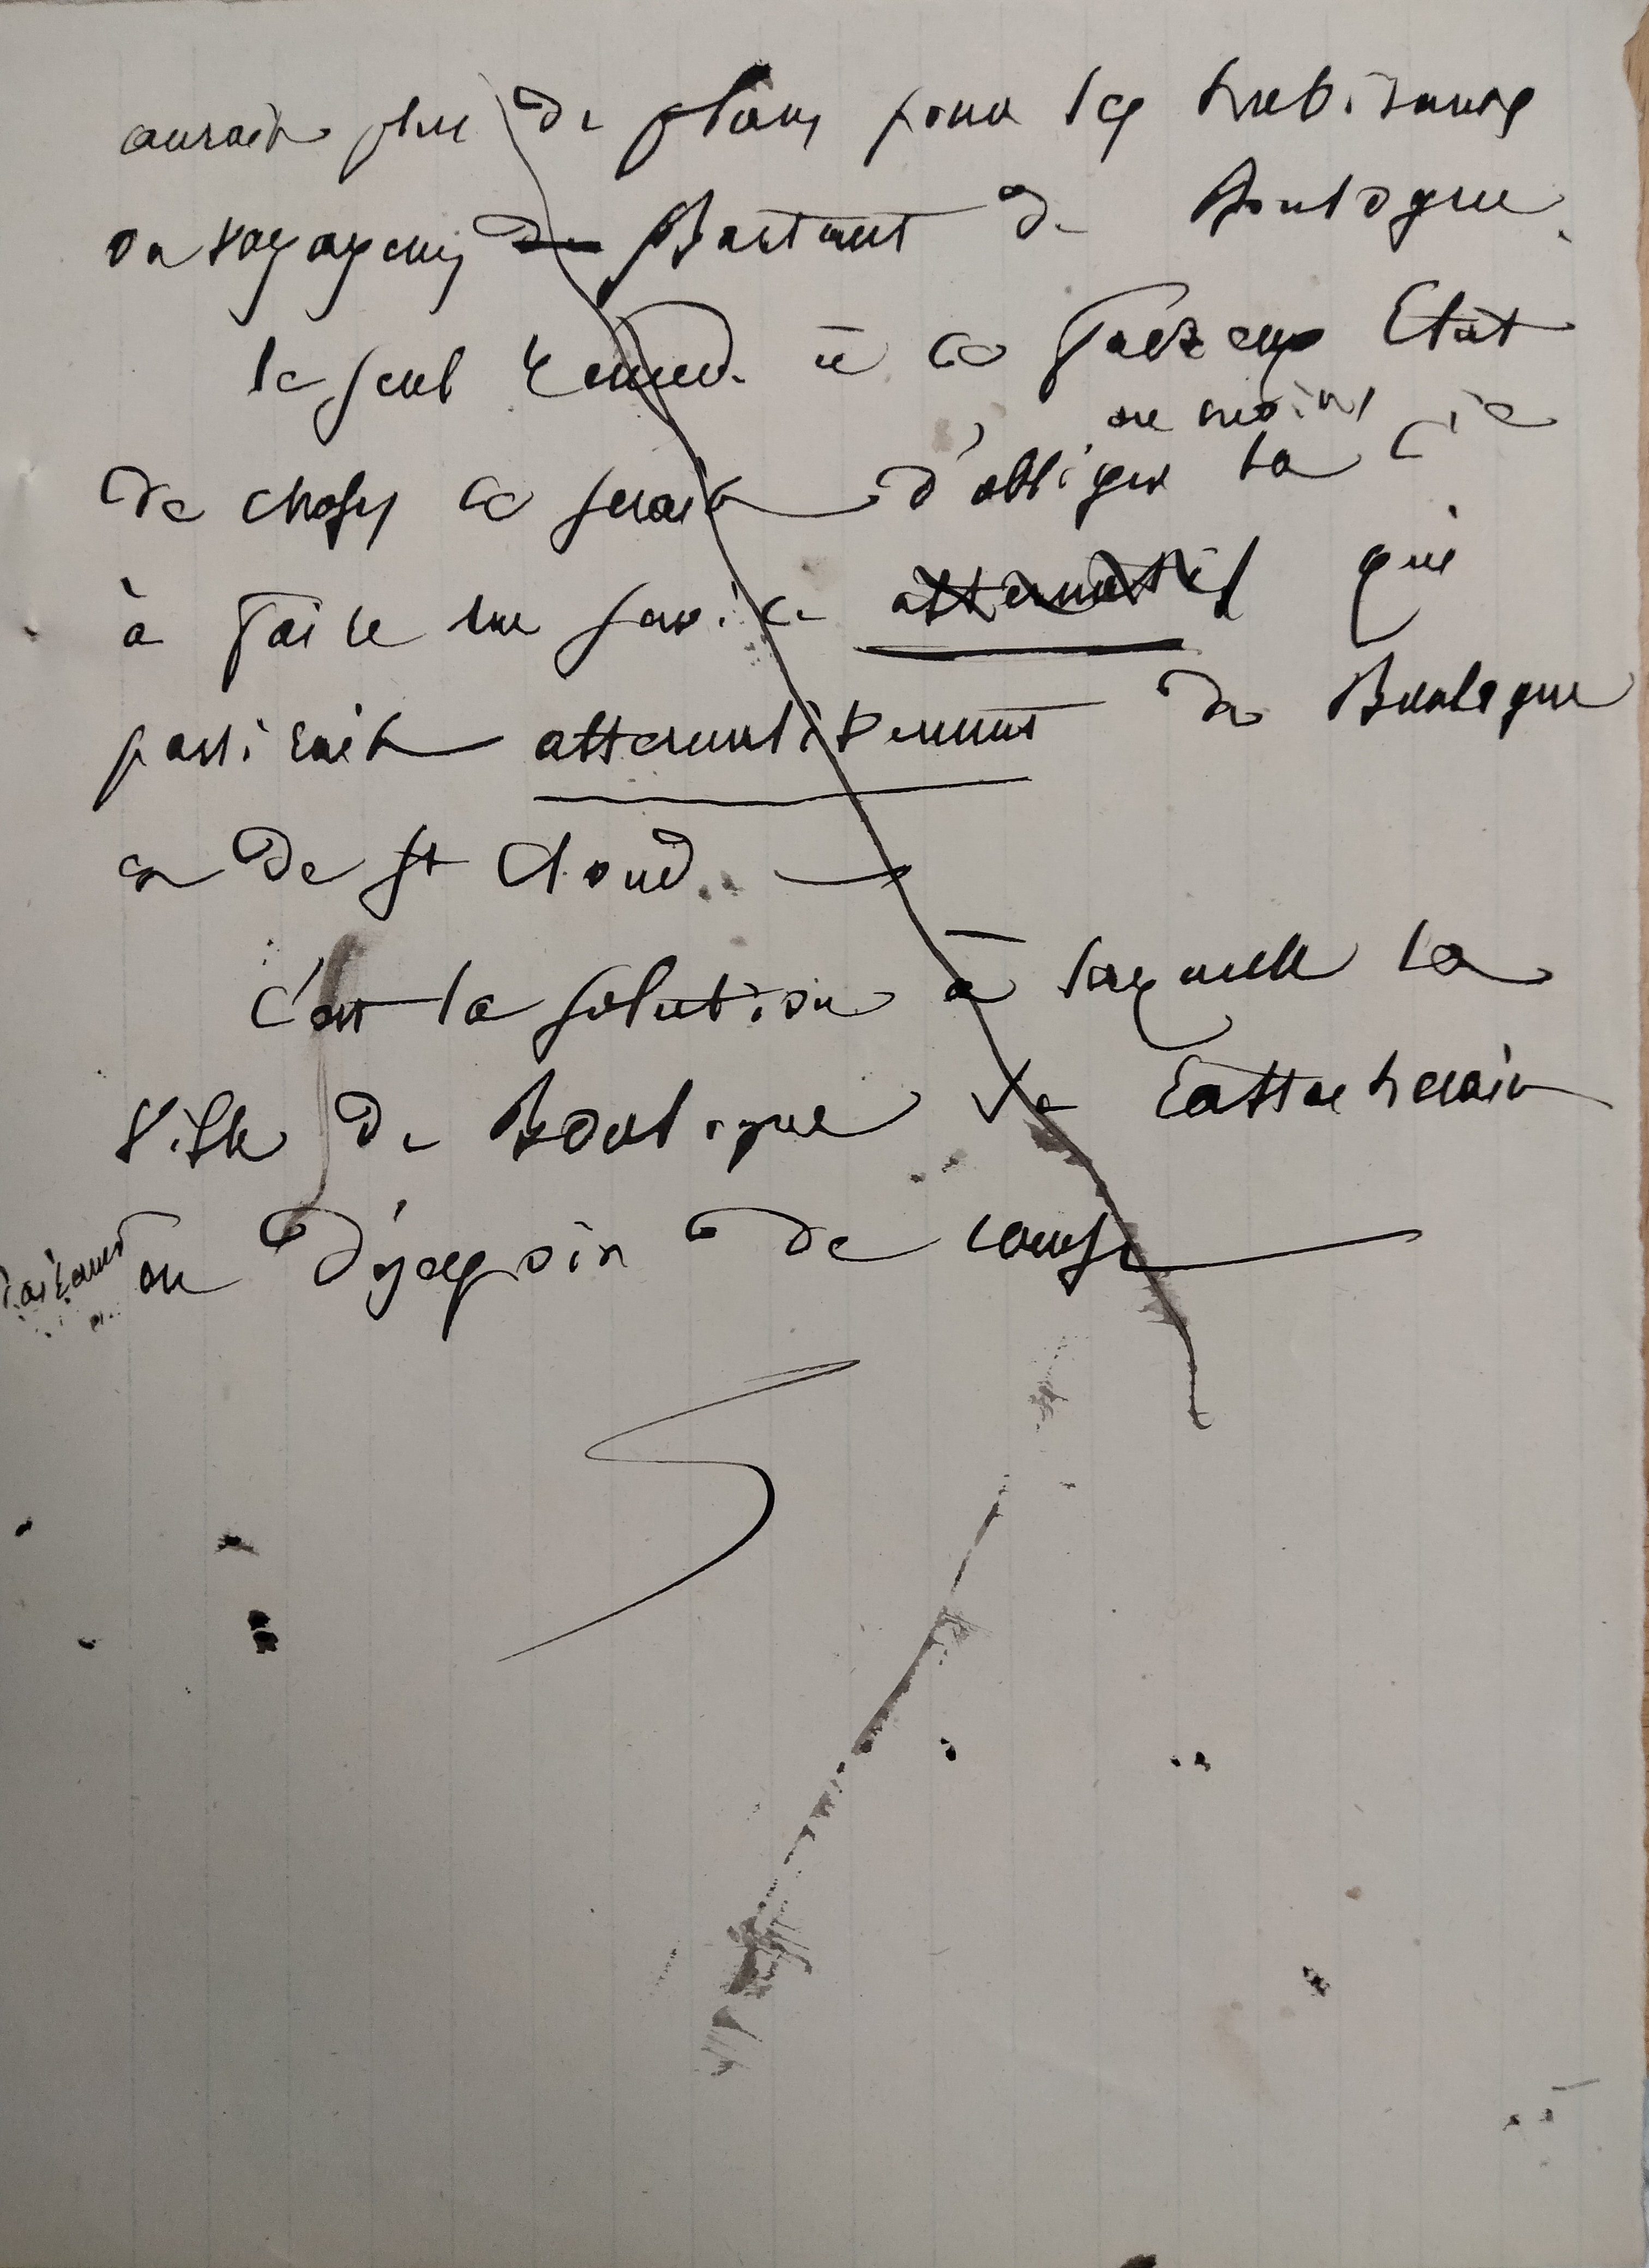 aurait plus de place pour les habitants
ou voyageurs de Partant de Boulogne.
le seul remède à ce Etat
au moins
de choses ce serait d'obliger la Cie
à faire un service alternatif qui
partirait alternativement de Boulogne
et de St Cloud.
C'est la solution à laquelle la
Ville de Boulogne se rattacherait
en de cause